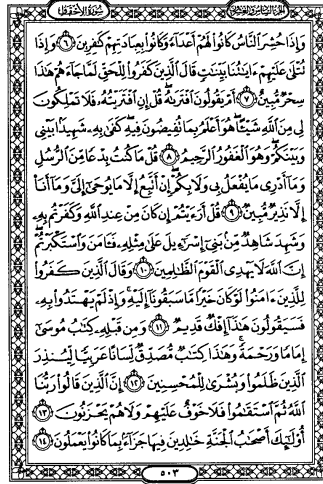 الجزء السادس والعشرون سورة الأحقاف
وَإِذَا حُشِرَ ٱلنَّاسُ كَانُوا۟ لَهُمْ أَعْدَآءً وَكَانُوا۟ بِعِبَادَتِهِمْ كَـٰفِرِينَ ٦ وَإِذَا
تُتْلَىٰ عَلَيْهِمْ ءَايَـٰتُنَا بَيِّنَـٰتٍ قَالَ ٱلَّذِينَ كَفَرُوا۟ لِلْحَقِّ لَمَّا جَآءَهُمْ هَـٰذَا
سِحْرٌ مُّبِينٌ ٧ أَمْ يَقُولُونَ ٱفْتَرَىٰهُ قُلْ إِنِ ٱفْتَرَيْتُهُۥ فَلَا تَمْلِكُونَ
لِى مِنَ ٱللَّهِ شَيْـًٔا هُوَ أَعْلَمُ بِمَا تُفِيضُونَ فِيهِ كَفَىٰ بِهِۦ شَهِيدًۢا بَيْنِى
وَبَيْنَكُمْ وَهُوَ ٱلْغَفُورُ ٱلرَّحِيمُ ٨ قُلْ مَا كُنتُ بِدْعًا مِّنَ ٱلرُّسُلِ
وَمَآ أَدْرِى مَا يُفْعَلُ بِى وَلَا بِكُمْ إِنْ أَتَّبِعُ إِلَّا مَا يُوحَىٰٓ إِلَىَّ وَمَآ أَنَا۠
إِلَّا نَذِيرٌ مُّبِينٌ ٩ قُلْ أَرَءَيْتُمْ إِن كَانَ مِنْ عِندِ ٱللَّهِ وَكَفَرْتُم بِهِۦ
وَشَهِدَ شَاهِدٌ مِّنۢ بَنِىٓ إِسْرَٰٓءِيلَ عَلَىٰ مِثْلِهِۦ فَـَٔامَنَ وَٱسْتَكْبَرْتُمْ
إِنَّ ٱللَّهَ لَا يَهْدِى ٱلْقَوْمَ ٱلظَّـٰلِمِينَ ١٠ وَقَالَ ٱلَّذِينَ كَفَرُوا۟
لِلَّذِينَ ءَامَنُوا۟ لَوْ كَانَ خَيْرًا مَّا سَبَقُونَآ إِلَيْهِ وَإِذْ لَمْ يَهْتَدُوا۟ بِهِۦ
فَسَيَقُولُونَ هَـٰذَآ إِفْكٌ قَدِيمٌ ١١ وَمِن قَبْلِهِۦ كِتَـٰبُ مُوسَىٰٓ
إِمَامًا وَرَحْمَةً وَهَـٰذَا كِتَـٰبٌ مُّصَدِّقٌ لِّسَانًا عَرَبِيًّا لِّيُنذِرَ
ٱلَّذِينَ ظَلَمُوا۟ وَبُشْرَىٰ لِلْمُحْسِنِينَ ١٢ إِنَّ ٱلَّذِينَ قَالُوا۟ رَبُّنَا
ٱللَّهُ ثُمَّ ٱسْتَقَـٰمُوا۟ فَلَا خَوْفٌ عَلَيْهِمْ وَلَا هُمْ يَحْزَنُونَ ١٣
أُو۟لَـٰٓئِكَ أَصْحَـٰبُ ٱلْجَنَّةِ خَـٰلِدِينَ فِيهَا جَزَآءًۢ بِمَا كَانُوا۟ يَعْمَلُونَ ١٤
٥٠٣